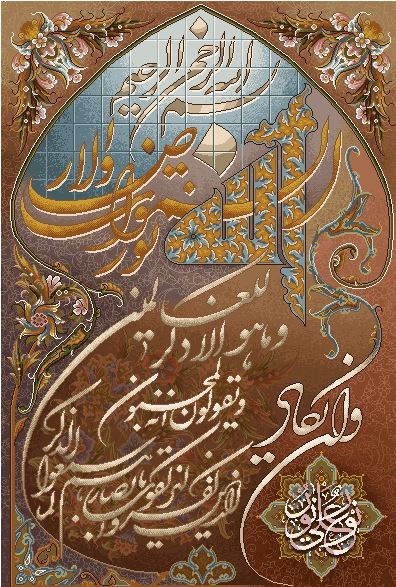 بسم الله الرحمن الرحیم
الله
نور السموات والارض
وان یکاد
الذین کفروا
لیزلقونک بابصارهم
لما سمعوا الذکر
ویقولون انه لمجنون
وما هو الا ذکر
للعالمین
نور علی نور